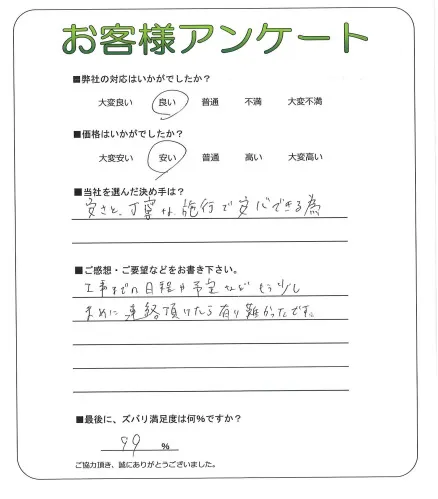 お客様アンケート
■弊社の対応はいかがでしたか?
大変良い 良い 普通 不満 大変不満
■価格はいかがでしたか?
大変安い 安い 普通 高い 大変高い
■当社を選んだ決め手は?
安さと、丁寧な施行で安心できる為
■ご感想・ご要望などをお書き下さい。
工事までの日程や予定などもう少し
まめに連絡頂けたら有り難かったです。
■最後に、ズバリ満足度は何%ですか?
99 %
ご協力頂き、誠にありがとうございました。